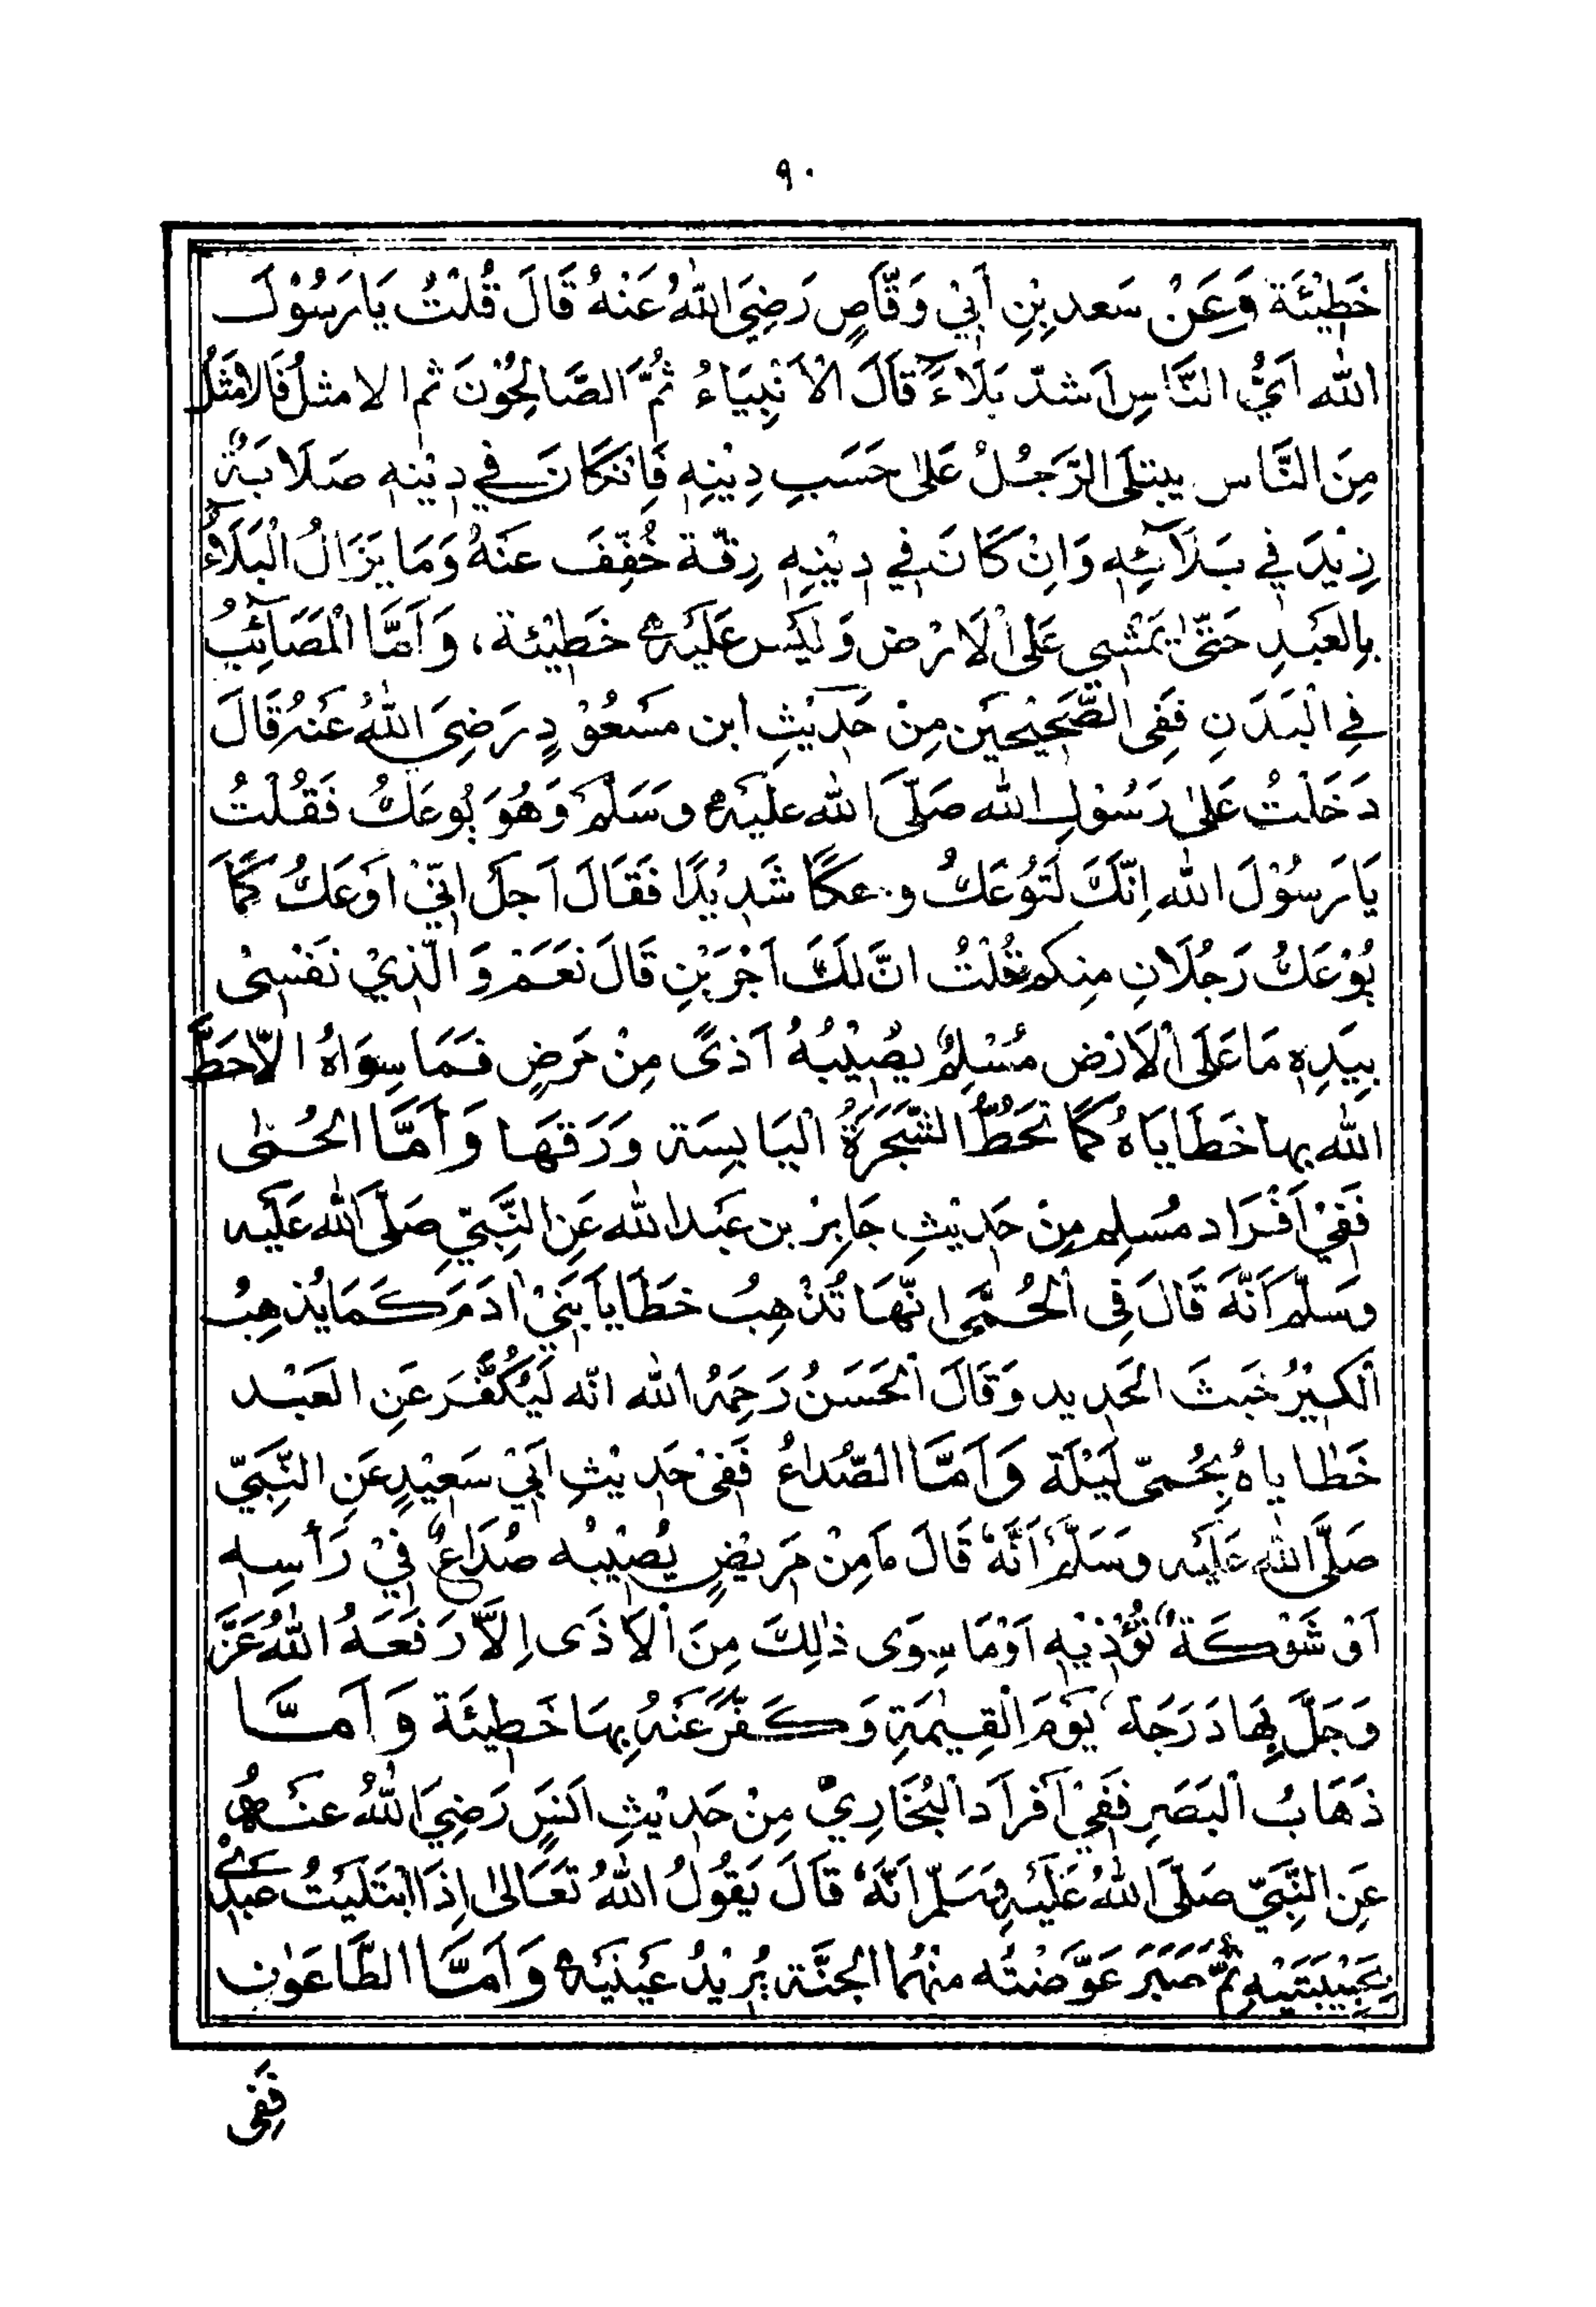 ٩٠
خَطِيْئَة وَعَنْ سَعد بِنِ اَبِي وَقَّاصٍ رَضِيَ اللهُ عَنْهُ قَالَ قُلْتُ يَا رَسُوْلَ
الله اَيُّ النَّاسِ اَشدّ بَلَاءً قَالَ الْاَنْبِيَاءُ ثُمَّ الصَّالِحُوْنَ ثم الامثلُ فَالاَمْثَلُ
مِنَ النَّاس يبتلَى الرَّجُلُ عَلىٰ حَسَبِ دِيْنِهٖ فَاِنْ كَانَ فِي دِيْنِهٖ صَلَابَةٌ
زِيْدَ فِي بَلَآئِهٖ وَاِنْ كَانَ فِي دِيْنِهٖ رِقّة خُفِّفَ عَنْهُ وَمَا يَزَالُ الْبَلَاءُ
بِالعَبْدِ حَتّىٰ يَمْشِي عَلَى الْاَرْض وَلَيْس عَلَيْهِ خَطِيْئة، وَاَمَّا الْمَصَآئِبُ
فِي الْبَدَنِ فَفِى الصَّحِيْحَيْن مِنْ حَدِيْثِ ابن مَسْعُوْدٍ رَضِيَ اللهُ عَنْهُ قَالَ
دَخَلْتُ عَلىٰ رَسُوْلِ الله صَلَّى الله عَلَيْهِ وَسَلَّمَ وَهُوَ يُوعَكُ فَقُلْتُ
يَا رَسُوْلَ الله اِنَّكَ لَتُوْعَكُ وعكًا شَدِيْدًا فَقَالَ اَجَلْ اِنِّيْ اُوعَكُ كَمَا
يُوْعَكُ رَجُلَانِ مِنكم قُلْتُ انَّ لَكَ اَجْرَيْنِ قَالَ نَعَمْ وَ الَّذِيْ نَفْسِىْ
بِيَدِهٖ مَا عَلَى الْاَرْض مُسْلِمٌ يُصِيْبُهُ اَذىً مِنْ مَرَضٍ فَمَا سِوَاهُ الاّ حَطَّ
الله بها خَطَايَاهُ كَمَا تَحُطُّ الشَّجَرَةُ الْيَابِسَة وَرَقَهَا وَ اَمَّا الحُمّٰى
فَفِيْ اَفْرَاد مُسْلِم مِنْ حَدِيْثِ جَابِرْ بن عَبد الله عَنِ النَّبِيّ صَلَّى الله عَلَيْه
وَسَلَّمَ اَنَّهُ قَالَ فِى الحُمَّى انَّهَا تُذْهِبُ خَطَايَا بَنِيْ اٰدَمَ كَمَا يُذهِبُ
الْكِيْرُ خَبَثَ الحَدِيد وَقَالَ الْحَسَنُ رَحِمَهُ الله انّه لَيُكَفَّرُ عَنِ العَبْد
خَطَايَاهُ بِحُمىّ لَيْلَة وَ اَمَّا الصُّدَاعُ فَفِىْ حَدِيْثِ اَبِيْ سَعِيْدٍ عَنِ النَّبِيّ
صَلَّى اللهُ عَلَيْه وَسَلَّمَ اَنَّهُ قَالَ مَا مِنْ مَرِيْضٍ يُصِيْبُه صُدَاعٌ فِيْ رَأسِهٖ
اَوْ شَوْكَةٌ تُؤْذِيْهِ اَوْ مَا سِوَى ذٰلِكَ مِنَ الْاَذَى اِلَّا رَفَعَهُ اللهُ عَزَّ
وَجَلَّ بِهَا دَرَجَةً يَوْمَ الْقِيٰمَةِ وَكَفَّرَ عَنْهُ بِهَا خَطِيْئَة وَ اَمَّا
ذَهَابُ الْبَصَرِ فَفِيْ اَفْرَاد الْبُخَارِيّ مِنْ حَدِيْثِ اَنَسٍ رَضِيَ اللهُ عَنْهُ
عَنِ النَّبِيّ صَلَّى اللهُ عَلَيْهِ وَسَلَّمَ اَنَّهُ قَالَ يَقُوْلُ اللهُ تَعَالىٰ اِذَا ابْتَلَيْتُ عَبْدِيْ
بِحَبِيْبَتَيْهِ ثُمَّ صَبَرَ عَوَّضْتُه منْهُمَا الجنَّة يُرِيْدُ عَيْنَيْهِ وَ اَمَّا الطَّاعُوْن
فَفِى